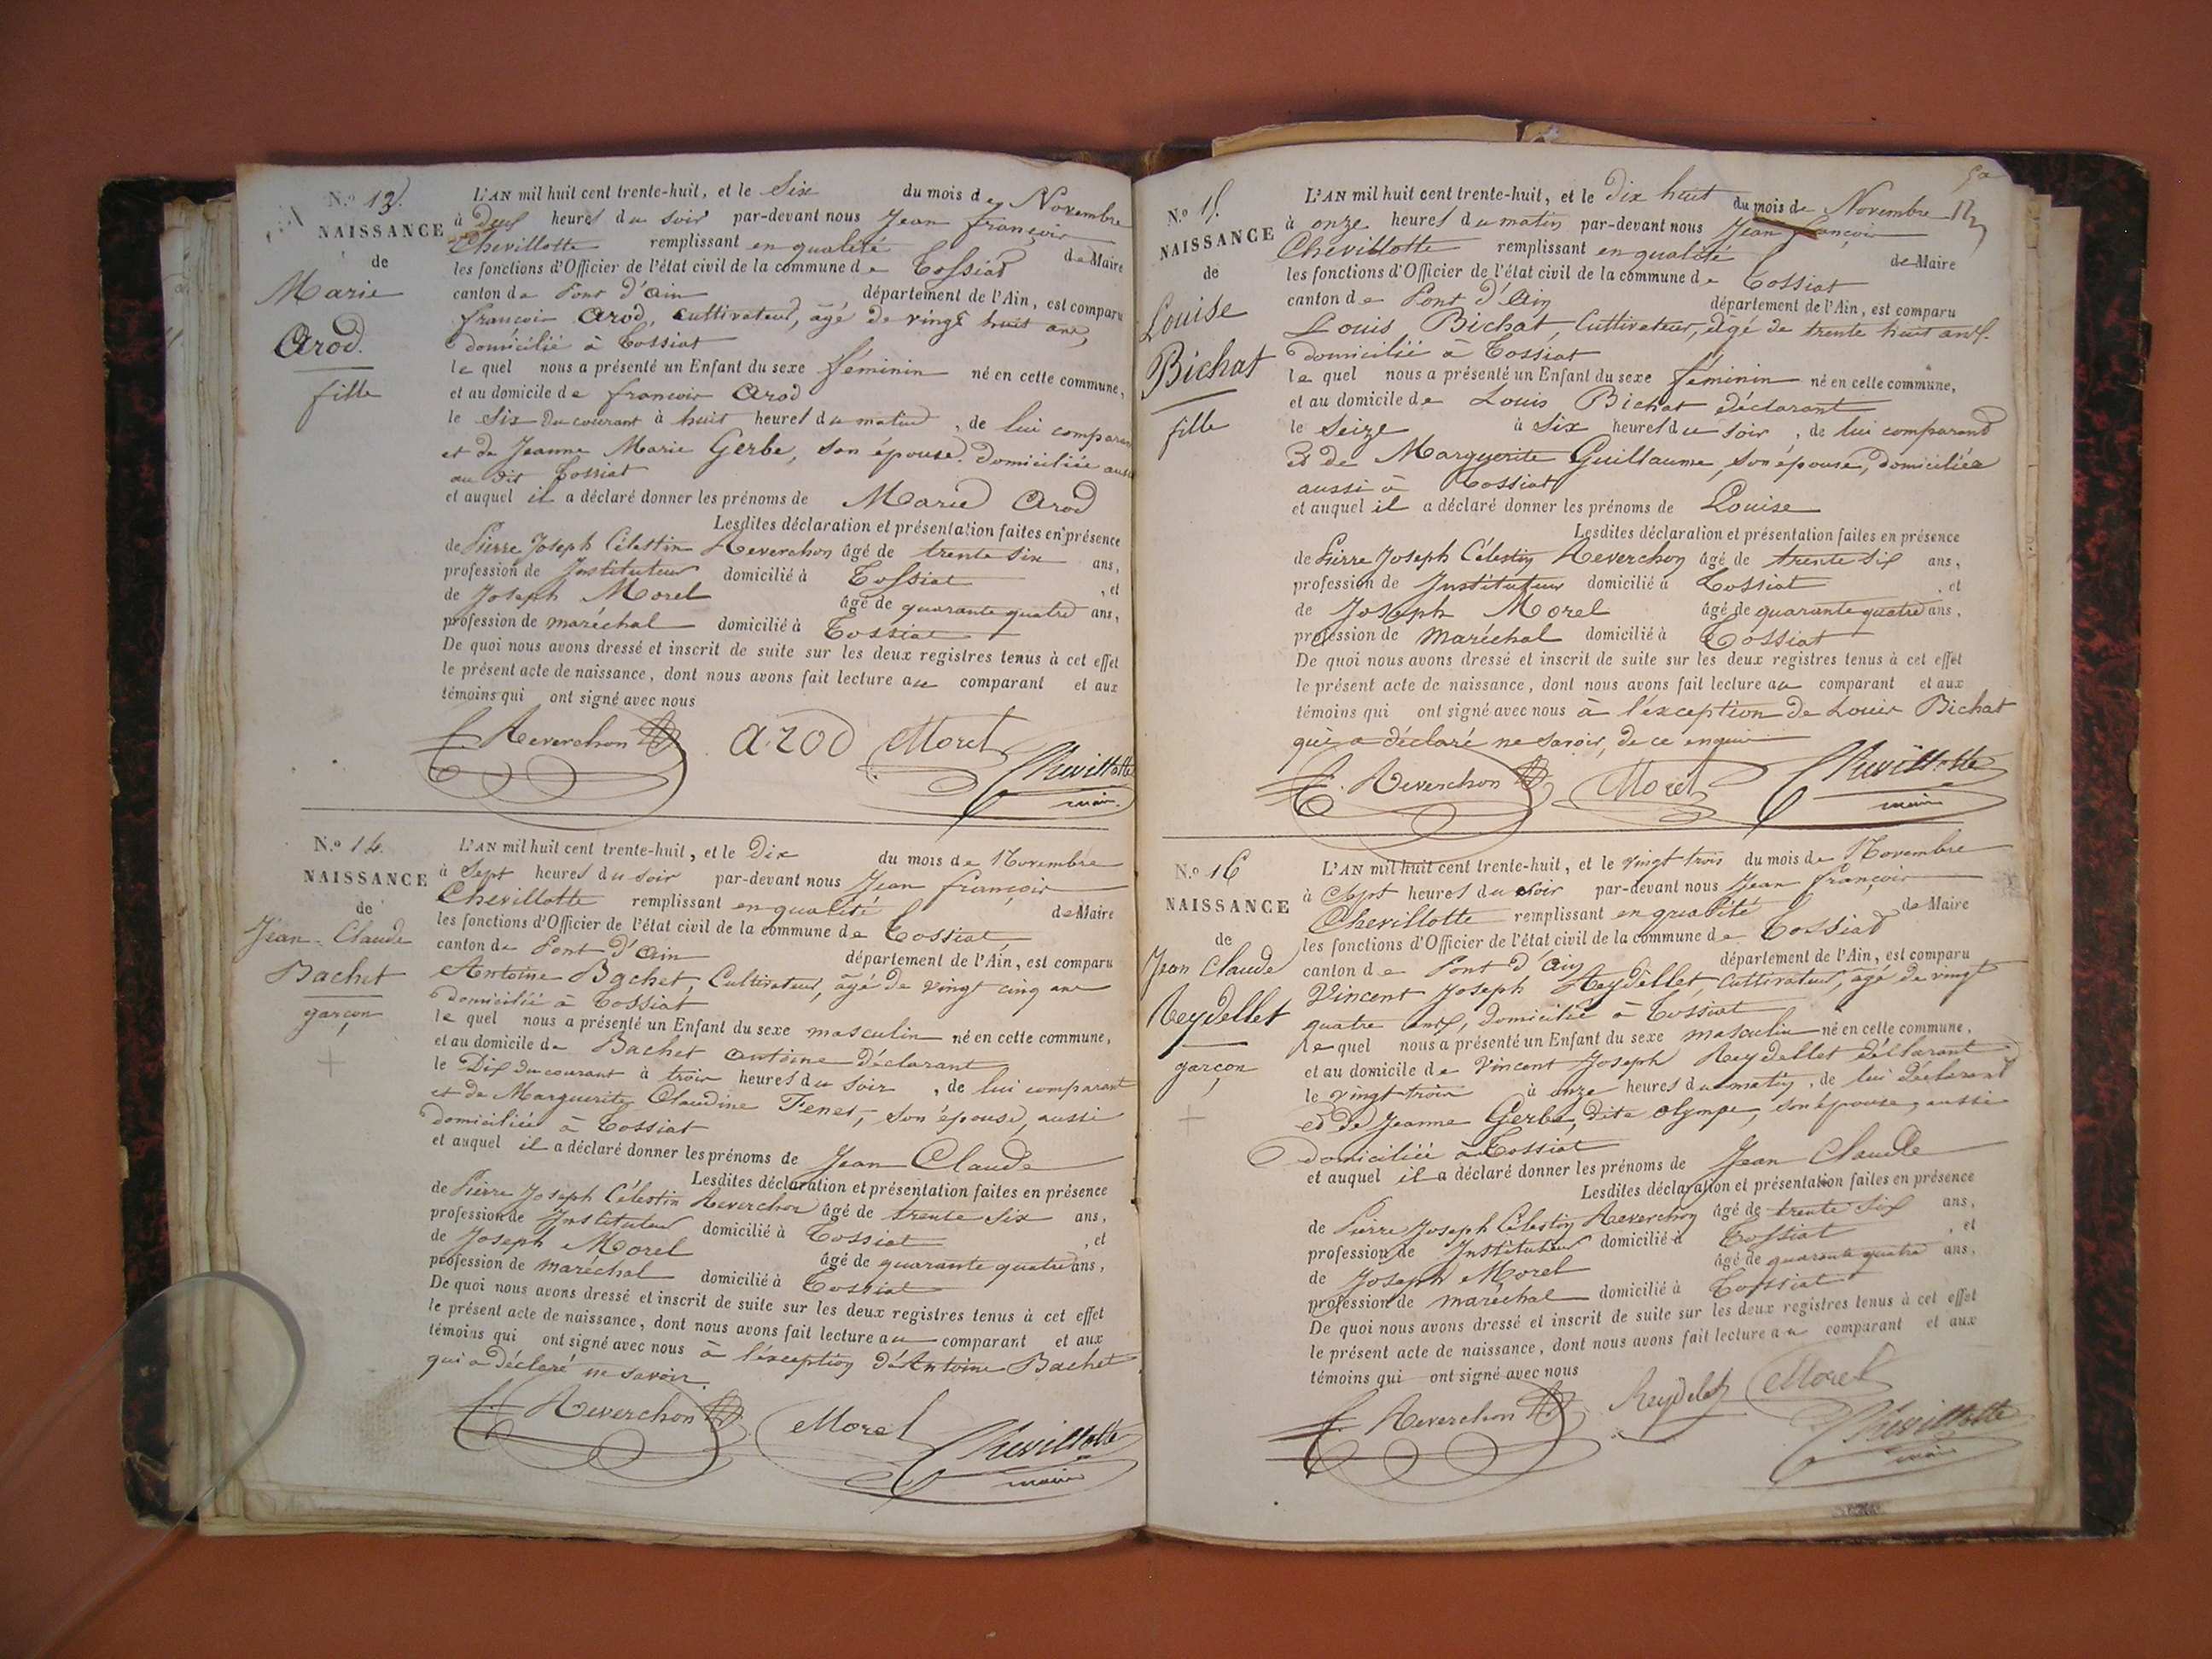 N.º 13.
NAISSANCE
de
Marie
Arod.
fille
L'AN mil huit cent trente-huit, et le Six du mois de Novembre
à deux heures du soir par-devant nous Jean françois
Chevillotte remplissant en qualité de Maire
les fonctions d'Officier de l'état civil de la commune de Tossiat
canton de Pont d'ain département de l'Ain, est comparu
françois Arod, Cultivateur, âgé de vingt huit ans,
domicilié à Tossiat
le quel nous a présenté un Enfant du sexe féminin né en cette commune,
et au domicile de françois Arod
le Six du courant à huit heures du matin, de lui comparant
et de Jeanne Marie Gerbe, son épouse. domiciliée aussi
au dit Tossiat
et auquel il a déclaré donner les prénoms de Marie Arod
Lesdites déclaration et présentation faites en présence
de Pierre Joseph Célestin Reverchon âgé de trente six ans,
profession de Instituteur domicilié à Tossiat, et
de Joseph Morel âgé de quarante quatre ans,
profession de maréchal domicilié à Tossiat
De quoi nous avons dressé et inscrit de suite sur les deux registres tenus à cet effet
le présent acte de naissance, dont nous avons fait lecture au comparant et aux
témoins qui ont signé avec nous
Reverchon arod Morel
Chevillotte
maire
N.º 14.
NAISSANCE
de
Jean-Claude
Bachet
garçon
L'AN mil huit cent trente-huit, et le Dix du mois de Novembre
à Sept heures du soir par-devant nous Jean françois
Chevillotte remplissant en qualité de Maire
les fonctions d'Officier de l'état civil de la commune de Tossiat
canton de Pont d'ain département de l'Ain, est comparu
Antoine Bachet, Cultivateur, âgé de vingt cinq ans
domicilié à Tossiat
le quel nous a présenté un Enfant du sexe masculin né en cette commune,
et au domicile de Bachet antoine déclarant
le Dix du courant à trois heures du soir, de lui comparant
et de Marguerite Claudine Fenet, son épouse, aussi
domiciliée à Tossiat
et auquel il a déclaré donner les prénoms de Jean Claude
Lesdites déclaration et présentation faites en présence
de Pierre Joseph Célestin Reverchon âgé de trente six ans,
profession de Instituteur domicilié à Tossiat, et
de Joseph Morel âgé de quarante quatre ans,
profession de maréchal domicilié à Tossiat
De quoi nous avons dressé et inscrit de suite sur les deux registres tenus à cet effet
le présent acte de naissance, dont nous avons fait lecture au comparant et aux
témoins qui ont signé avec nous à l'exception d'Antoine Bachet
qui a déclaré ne savoir.
Reverchon Morel
Chevillotte
maire
N.º 15.
NAISSANCE
de
Louise
Bichat
fille
L'AN mil huit cent trente-huit, et le Dix huit du mois de Novembre
à onze heures du matin par-devant nous Jean françois
Chevillotte remplissant en qualité de Maire
les fonctions d'Officier de l'état civil de la commune de Tossiat
canton de Pont d'Ain département de l'Ain, est comparu
Louis Bichat, Cultivateur, âgé de trente huit ans.
domicilié à Tossiat
le quel nous a présenté un Enfant du sexe féminin né en cette commune,
et au domicile de Louis Bichat déclarant
le Seize à Six heures du soir, de lui comparant
et de Marguerite Guillaume, son épouse, domiciliée
aussi à Tossiat
et auquel il a déclaré donner les prénoms de Louise
Lesdites déclaration et présentation faites en présence
de Pierre Joseph Célestin Reverchon âgé de trente six ans,
profession de Instituteur domicilié à Tossiat, et
de Joseph Morel âgé de quarante quatre ans,
profession de Maréchal domicilié à Tossiat
De quoi nous avons dressé et inscrit de suite sur les deux registres tenus à cet effet
le présent acte de naissance, dont nous avons fait lecture au comparant et aux
témoins qui ont signé avec nous à l'exception de Louis Bichat
qui a déclaré ne savoir, de ce enquis
Reverchon Morel Chevillotte
maire
N.º 16
NAISSANCE
de
Jean Claude
Reydellet
garçon
L'AN mil huit cent trente-huit, et le vingt trois du mois de Novembre
à Sept heures du soir par-devant nous Jean françois
Chevillotte remplissant en qualité de Maire
les fonctions d'Officier de l'état civil de la commune de Tossiat
canton de Pont d'ain département de l'Ain, est comparu
Vincent Joseph Reydellet, Cultivateur, âgé de vingt
quatre ans, domicilié à Tossiat
le quel nous a présenté un Enfant du sexe masculin né en cette commune,
et au domicile de Vincent Joseph Reydellet déclarant
le vingt trois à onze heures du matin, de lui déclarant
et de Jeanne Gerbe, dite olympe, son épouse, aussi
domiciliée à Tossiat
et auquel il a déclaré donner les prénoms de Jean Claude
Lesdites déclaration et présentation faites en présence
de Pierre Joseph Célestin Reverchon âgé de trente six ans,
profession de Instituteur domicilié à Tossiat, et
de Joseph Morel âgé de quarante quatre ans,
profession de maréchal domicilié à Tossiat
De quoi nous avons dressé et inscrit de suite sur les deux registres tenus à cet effet
le présent acte de naissance, dont nous avons fait lecture au comparant et aux
témoins qui ont signé avec nous
Reverchon Reydelet Morel
Chevillotte
maire